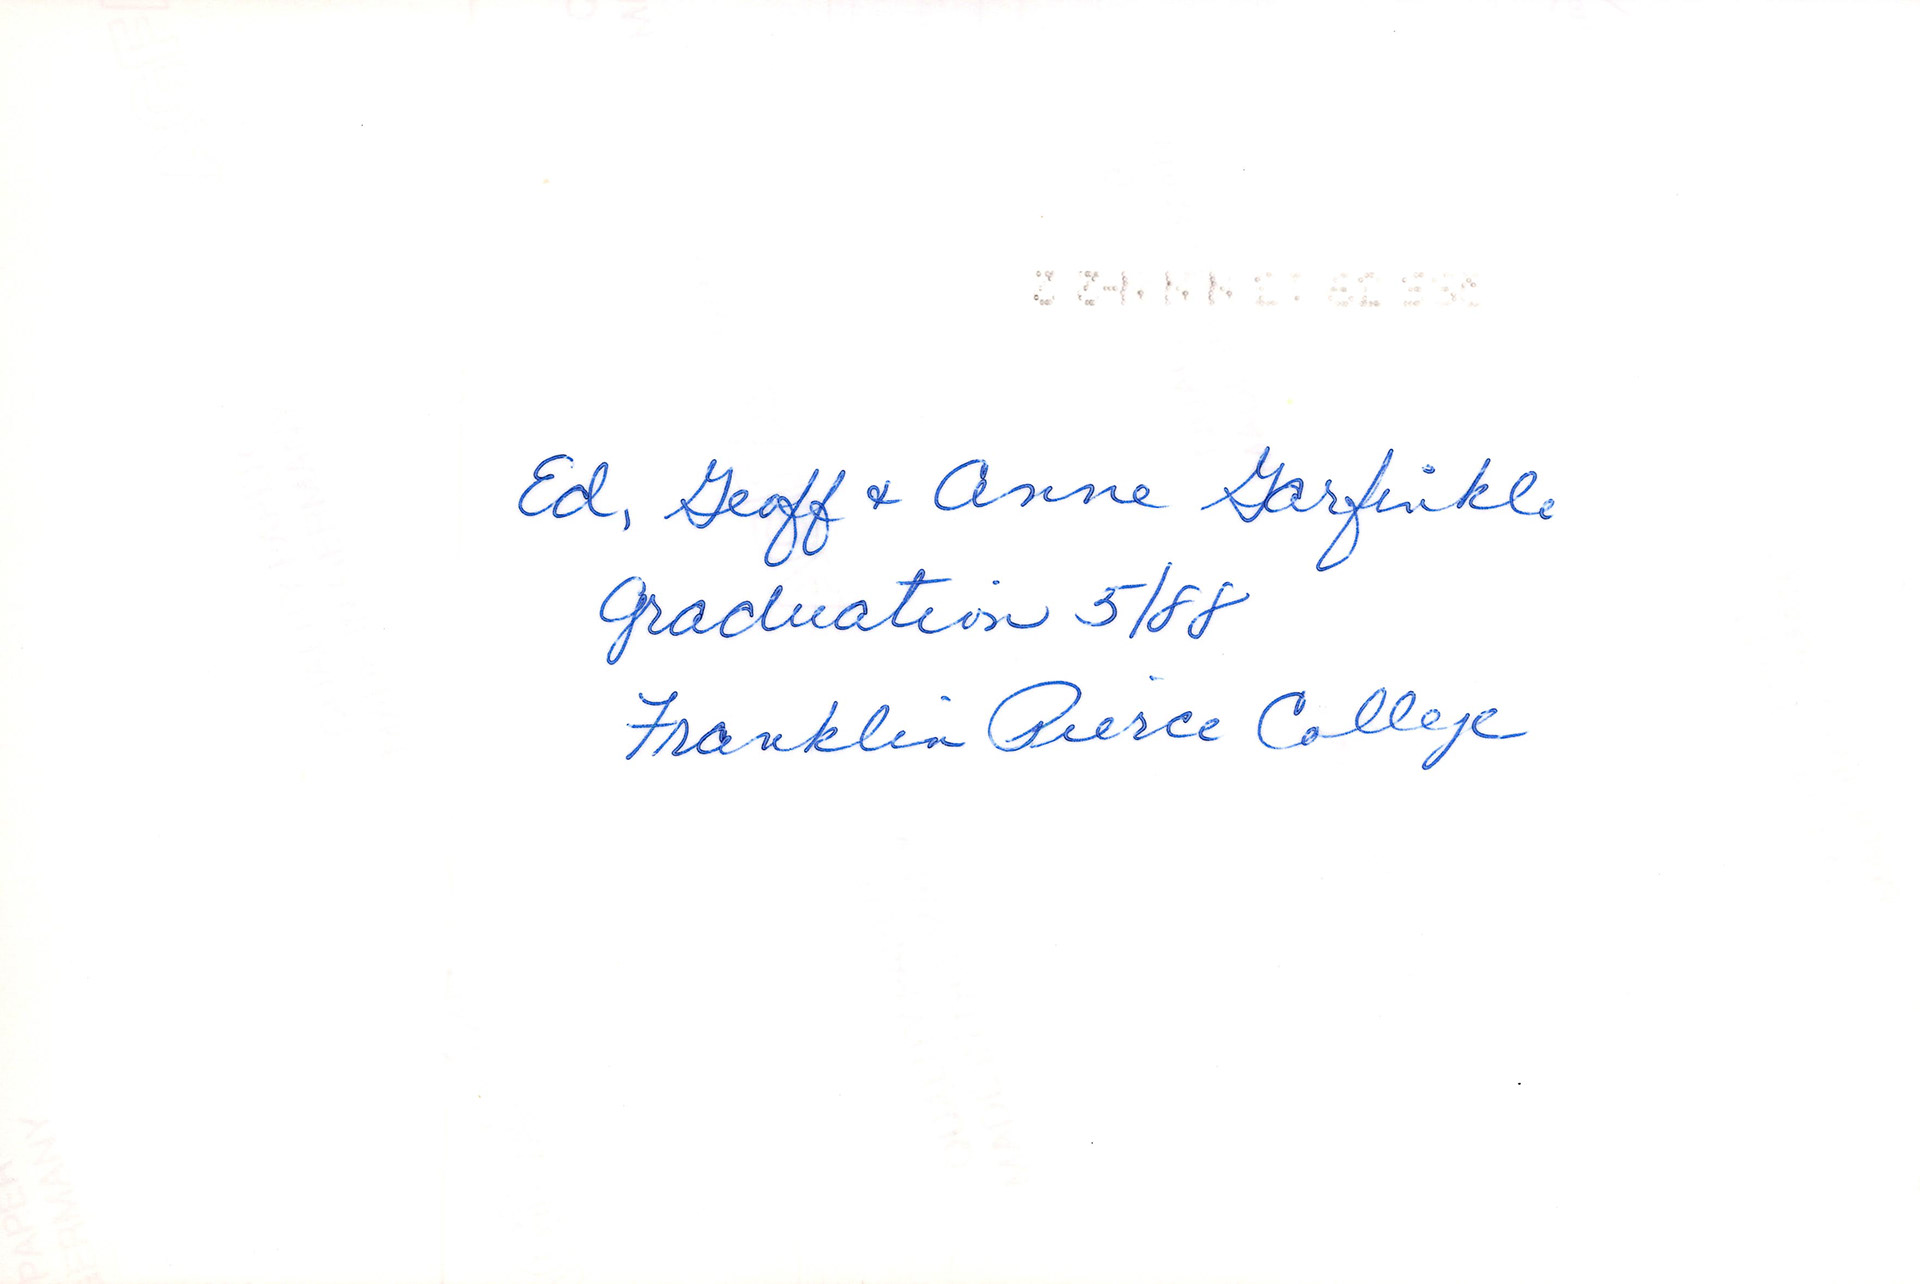 Ed, Geoff & Anne Garfinkle
Graduation 5/88
Franklin Pierce College
PAPER
GERMANY